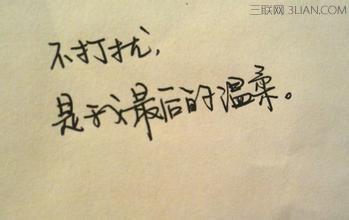 三联网 3LIAN.COM
不打扰,
是我最后的温柔。